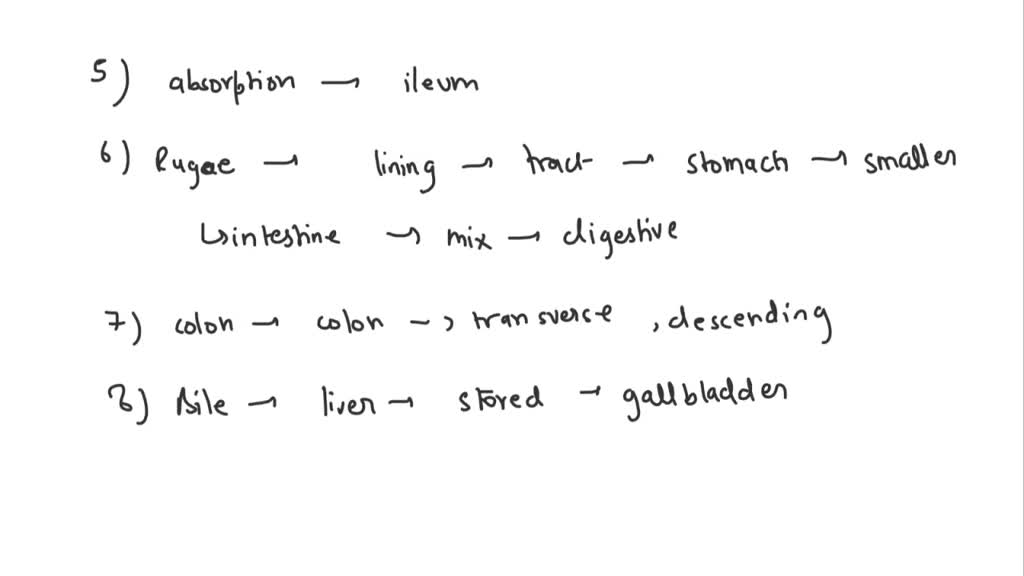 5) absorption → ileum
6) Rugae → lining → tract → stomach → smaller
↳ intestine → mix → digestive
7) colon → colon → transverse, descending
8) Bile → liver → stored → gallbladder